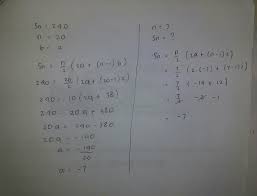 Sn = 240
n = 20
b = 2
Sn = n/2 (2a + (n-1) b)
240 = 20/2 (2a + (20-1) 2)
240 = 10 (2a + 38)
240 = 20a + 380
20a = 240 - 380
20a = -140
a = -140/20
a = -7
n = ?
Sn = ?
Sn = n/2 (2a + (n-1) 2)
= 7/2 (2(-7) + (7-1) 2)
= 7/2 (-14 + 12)
= -7